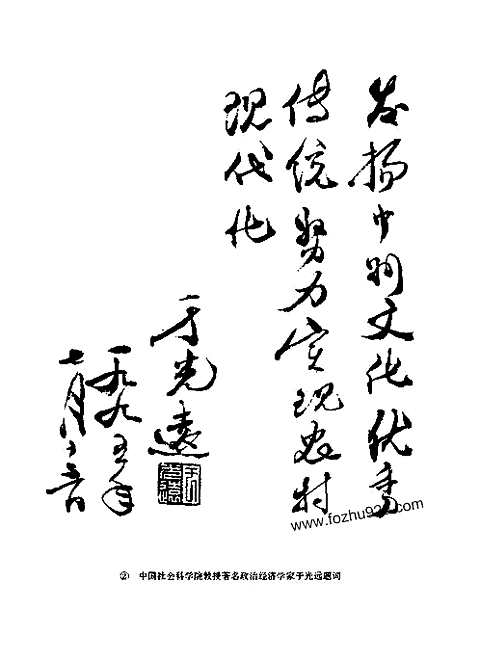 发扬中州文化优秀
传统努力实现农村
现代化
于光远
一九九五年
七月
www.fozhu92
.com
② 中国社会科学院教授著名政治经济学家于光远题词